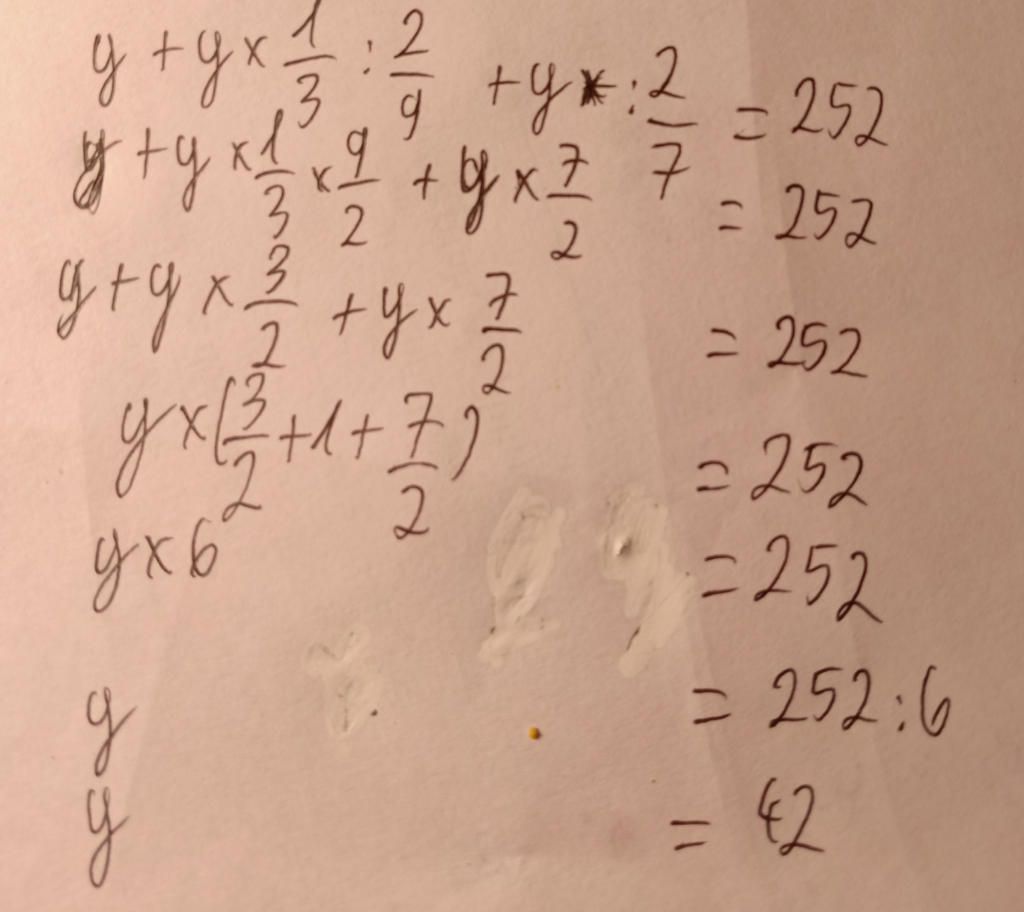 y + y × 1/3 : 2/9 + y : 2/7 = 252
y + y × 1/3 × 9/2 + y × 7/2 = 252
y + y × 3/2 + y × 7/2 = 252
y × (3/2 + 1 + 7/2) = 252
y × 6 = 252
y = 252 : 6
y = 42